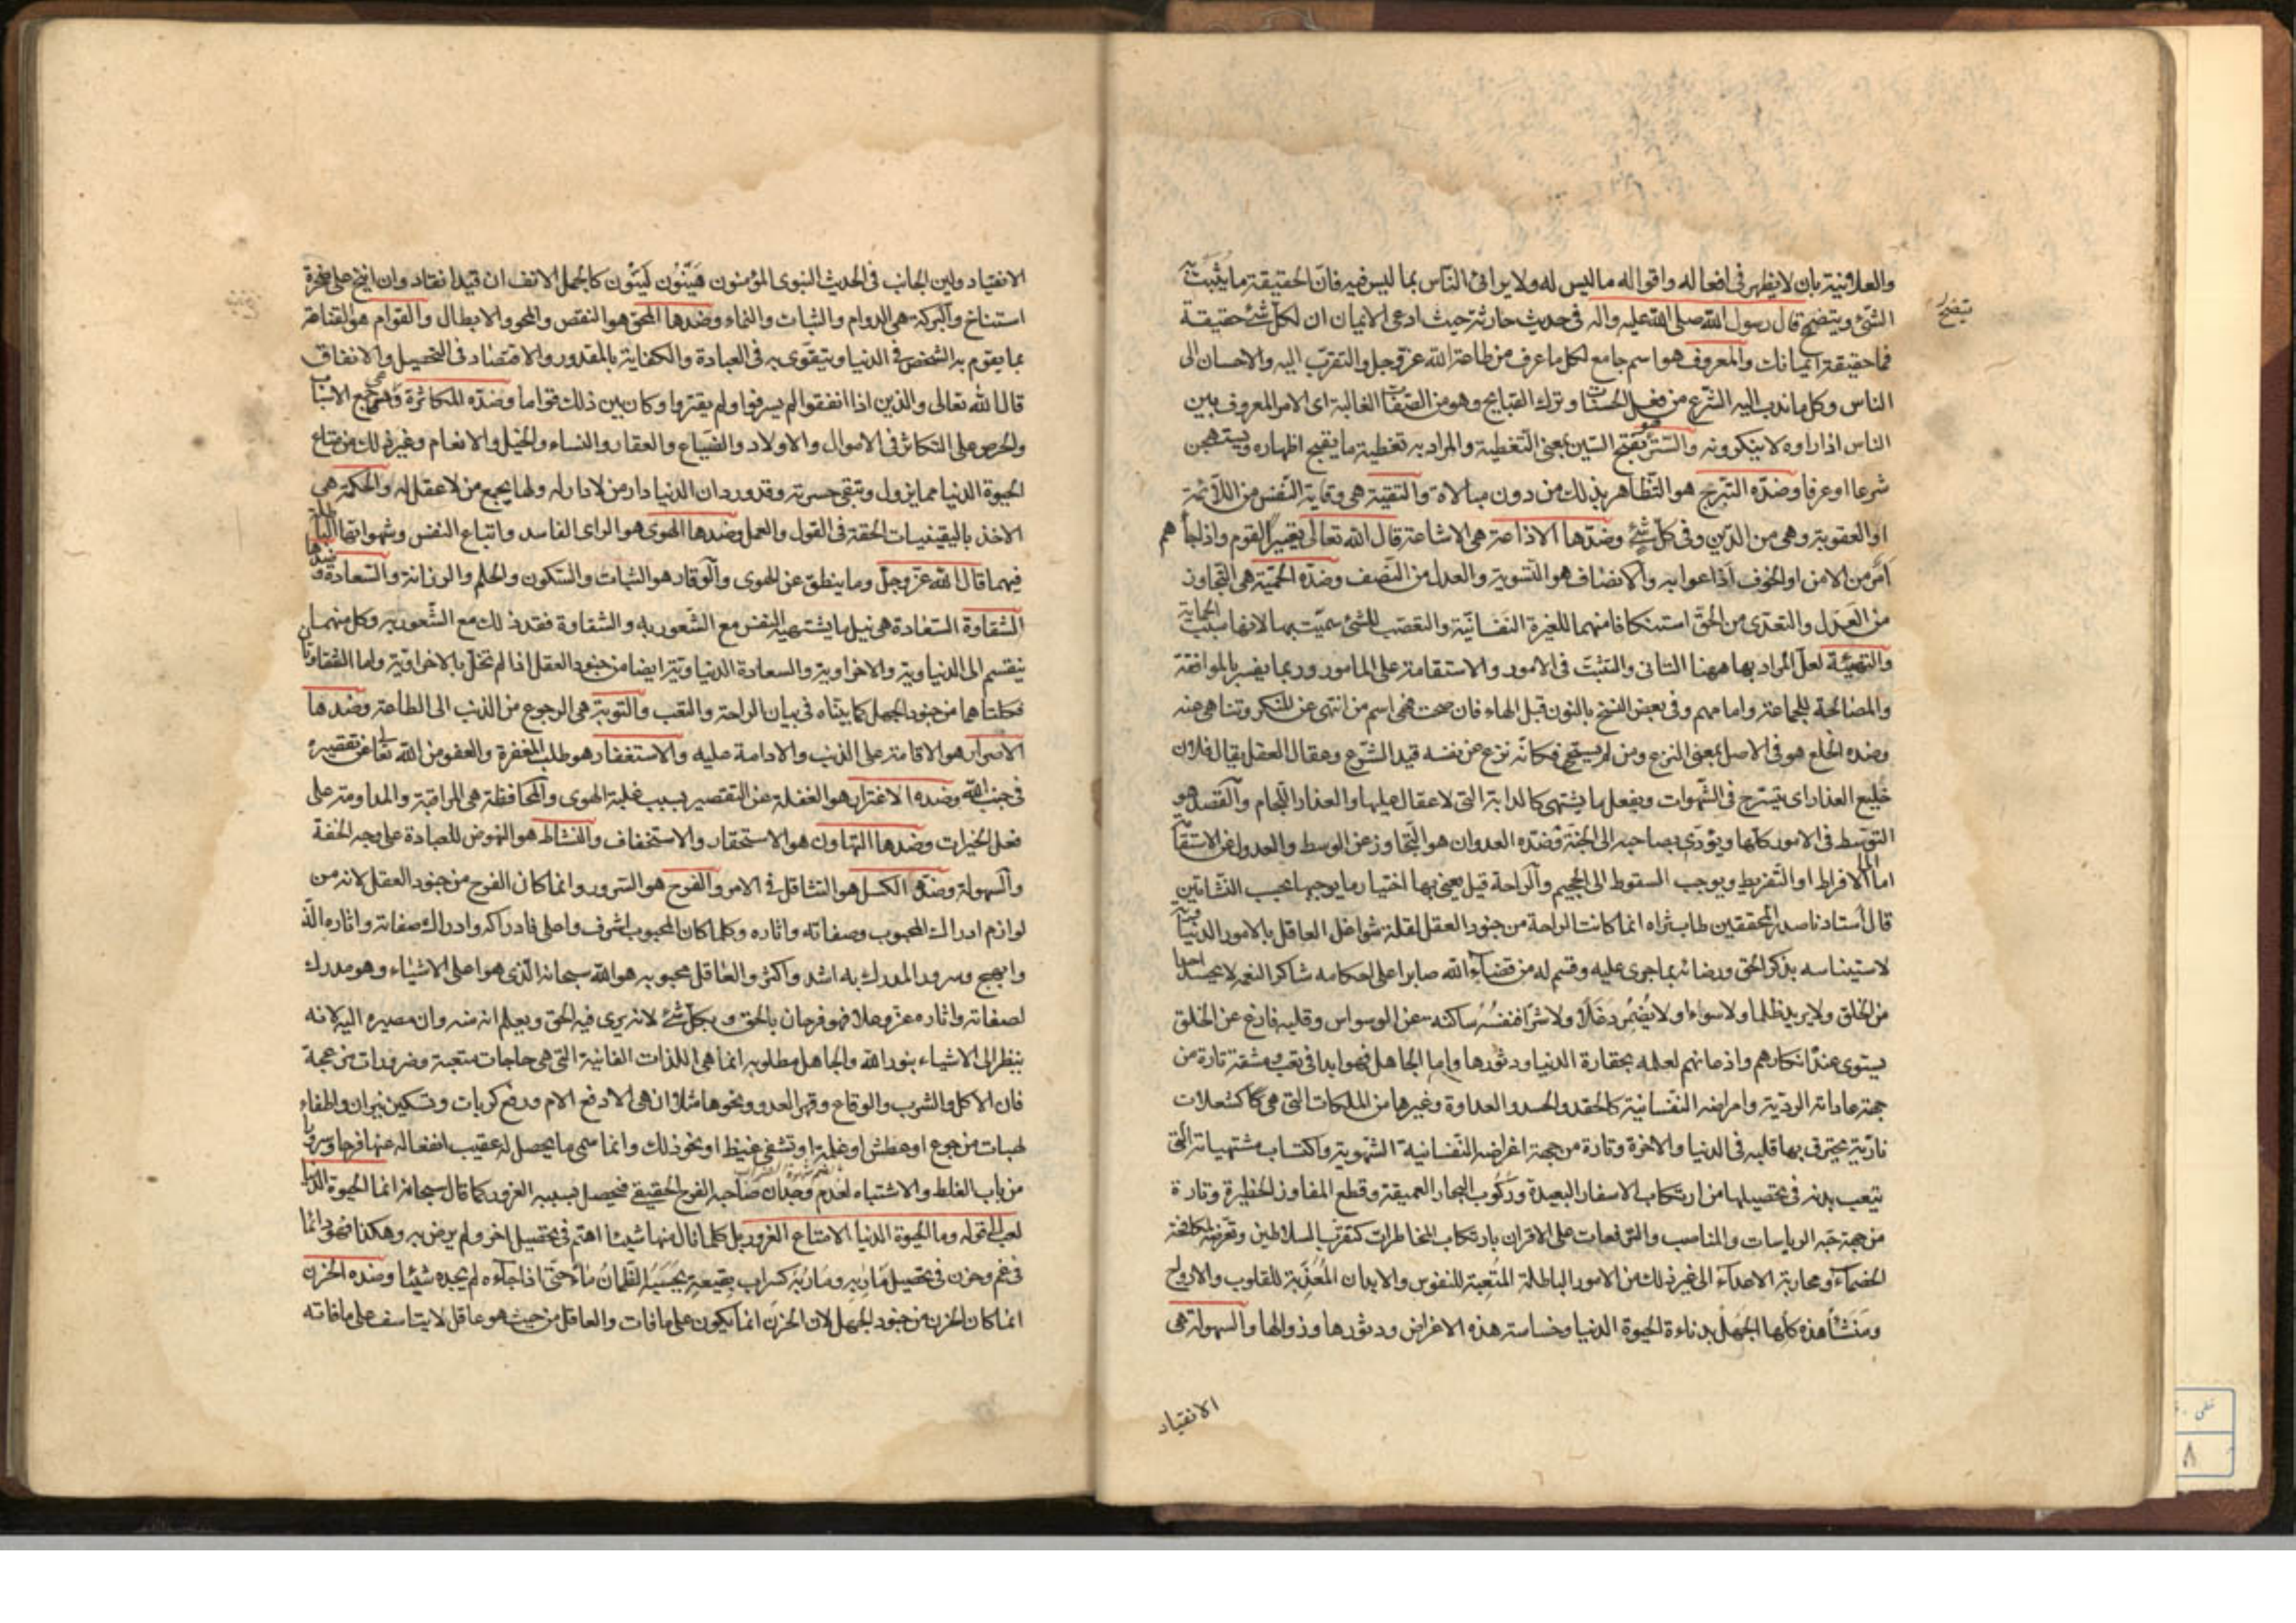 والعلانية بان لا يظهر فى افعاله واقواله ما ليس له ولا يرائى الناس بما ليس فيه فان الحقيقة ما يثبت به
الشئ ويتضح قال رسول الله صلى الله عليه واله فى حديث حارثة حيث ادعى الايمان ان لكل شئ حقيقة
يتضح
فما حقيقة ايمانك والمعروف هو اسم جامع لكل ما عرف من طاعة الله عز وجل والتقرب اليه والاحسان الى
الناس وكل ما ندب اليه الشرع من فعل الحسنات وترك القبايح وهو من الصفات الغالبة اى الامر المعروف بين
الناس اذا راوه لا ينكرونه والستر هو بفتح السين بمعنى التغطية والمراد به تغطية ما يقبح اظهاره ويستهجن
شرعا او عرفا وضده التبرج هو التظاهر بذلك من دون مبالاة والتقية هى وقاية النفس من اللائمة
او العقوبة وهى من الدين وفى كل شئ وضدها الاذاعة هى الاشاعة قال الله تعالى بعير القوم واذا جاءهم
امر من الامن او الخوف اذاعوا به والانصاف هو التسوية والعدل من النصف وضده الحمية هى التجاوز
من العدل والتعدى من الحق استنكافا منهما للغيرة النفسانية والتعصب للشئ سميت بها لانها سبب الحماية
والتهيئة لعل المراد بها ههنا التانى والتثبت فى الامور والاستقامة على المامور وربما يفسر بالموافقة
والمصالحة للجماعة وامامهم وفى بعض النسخ بالنون قبل الهاء فان صحت فهى اسم من انتهى عن المنكر وتناهى عنه
وضده الخلع هو فى الاصل بمعنى النزع ومن لم يستح فكانه نزع عن نفسه قيد الشرع وعقال العقل يقال فلان
خليع العذار اى يتسرح فى الشهوات ويفعل ما يشتهى كالدابة التى لا عقال عليها والعذار اللجام والقصد هو
التوسط فى الامور كلها ويؤدى بصاحبه الى الجنة وضده العدوان هو التجاوز عن الوسط والعدول عن الاستقامة
اما الى الافراط او التفريط ويوجب السقوط الى الجحيم والراحة قيل يعنى بها اختيار ما يوجبها بحسب النشاتين
قال استادنا صدر المحققين طاب ثراه انما كانت الراحة من جنود العقل لقلة شواغل العاقل بالامور الدنيوية
لاستيناسه بذكر الحق ورضائه بما جرى عليه وقسم له من قضاء الله صابرا على احكامه شاكرا لنعمه لا يحسد احدا
من الخلق ولا يريد ظلما ولا سواء ولا يضمر دغلا ولا شرا فنفسه ساكنه عن الوسواس وقلبه فارغ عن الخلق
يستوى عنده انكارهم واذعانهم لعلمه بحقارة الدنيا ودثورها واما الجاهل فهو ابدا فى تعب ومشقة تارة من
جهة عاداته الردية وامراضه النفسانية كالحقد والحسد والعداوة وغيرها من الملكات التى هى كشعلات
نارية يحترق بها قلبه فى الدنيا والاخرة وتارة من جهة اغراضه النفسانية الشهوية واكتساب مشتهياته التى
يتعب بدنه فى تحصيلها من ارتكاب الاسفار البعيدة وركوب البحار العميقة وقطع المفاوز الخطيرة وتارة
من جهة حبه الرياسات والمناصب والترفعات على الاقران بارتكاب المخاطرات كتقرب السلاطين وتعرضه لمكافحة
الخصماء ومحاربة الاعداء الى غير ذلك من الامور الباطلة المتعبة للنفوس والابدان المعذبة للقلوب والارواح
ومنشأ هذه كلها الجهل بدناءة الحيوة الدنيا وخساسة هذه الاغراض ودثورها وزوالها والسهولة هى
الانقياد
الانقياد ولين الجانب فى الحديث النبوى المؤمنون هينون لينون كالجمل الانف ان قيد انقاد وان انيخ على صخرة
استناخ والبركة هى الدوام والثبات والنماء وضدها المحق هو النقص والمحو والابطال والقوام هو القناعة
بما يقوم به الشخص فى الدنيا ويتقوى به فى العبادة والكفاية بالمقدور والاقتصاد فى التحصيل والانفاق
قال الله تعالى والذين اذا انفقوا لم يسرفوا ولم يقتروا وكان بين ذلك قواما وضده المكاثرة وهى جمع الاسباب
والحرص على التكاثر فى الاموال والاولاد والضياع والعقار والنساء والخيل والانعام وغير ذلك من متاع
الحيوة الدنيا مما يزول وتبقى حسرته وقد ورد ان الدنيا دار من لا دار له ولها يجمع من لا عقل له والحكمة هى
الاخذ باليقينيات الحقة فى القول والعمل وضدها الهوى هو الراى الفاسد واتباع النفس وشهواتها الباطلة
فيهما قال الله عز وجل وما ينطق عن الهوى والوقار هو الثبات والسكون والحلم والرزانة والسعادة وضدها
الشقاوة السعادة هى نيل ما يشتهيه النفس مع الشعور به والشقاوة فقد ذلك مع الشعور به وكل منهما
ينقسم الى الدنياوية والاخراوية والسعادة الدنياوية ايضا من جنود العقل اذا لم تخل بالاخراوية واما الشقاوتان
فكلتاهما من جنود الجهل كما بيناه فى بيان الراحة والتعب والتوبة هى الرجوع من الذنب الى الطاعة وضدها
الاصرار هو الاقامة على الذنب والادامة عليه والاستغفار هو طلب المغفرة والعفو من الله تعالى عن تقصيره
فى جنب الله وضده الاغترار هو الغفلة عن التقصير بسبب غلبة الهوى والمحافظة هى المراقبة والمداومة على
فعل الخيرات وضدها التهاون هو الاستحقار والاستخفاف والنشاط هو النهوض للعبادة على وجه الخفة
والسهولة وضده الكسل هو التثاقل فى الامر والفرح هو السرور وانما كان الفرح من جنود العقل لانه من
لوازم ادراك المحبوب وصفاته واثاره وكلما كان المحبوب اشرف واعلى فادراكه وادراك صفاته واثاره الذ
وابهج وسرور المدرك به اشد واكثر والعاقل محبوبه هو الله سبحانه الذى هو اعلى الاشياء وهو مدرك
لصفاته واثاره عز وعلا فهو فرحان بالحق وبكل شئ لانه يرى فيه الحق ويعلم انه منه وان مصيره اليه لانه
ينظر الى الاشياء بنور الله والجاهل مطلوبه انما هى اللذات الفانية التى هى حاجات متعبة وضرورات مزعجة
فان الاكل والشرب والوقاع وقهر العدو ونحوها مثلا ان هى الا دفع الام ورفع كربات وتسكين نيران واطفاء
لهبات من جوع او عطش او غلمة او تشفى غيظ او نحو ذلك وانما سمى ما يحصل له عقيب انفعاله عنها فرحا وسرورا
من باب الغلط والاشتباه لعدم وجدان صاحبه الفرح الحقيقى فيحصل بسببه الغرور كما قال سبحانه انما الحيوة الدنيا
لعب الى قوله وما الحيوة الدنيا الا متاع الغرور بل كلما نال منها شيئا اهتم فى تحصيل اخر ولم يرض به وهكذا فهو دائما
فى غم وحزن فى تحصيل مآربه ومآربه كسراب بقيعة يحسبه الظمان ماء حتى اذا جاءه لم يجده شيئا وضده الحزن
انما كان الحزن من جنود الجهل لان الحزن انما يكون على ما فات والعاقل من حيث هو عاقل لا يتاسف على ما فاته
٨